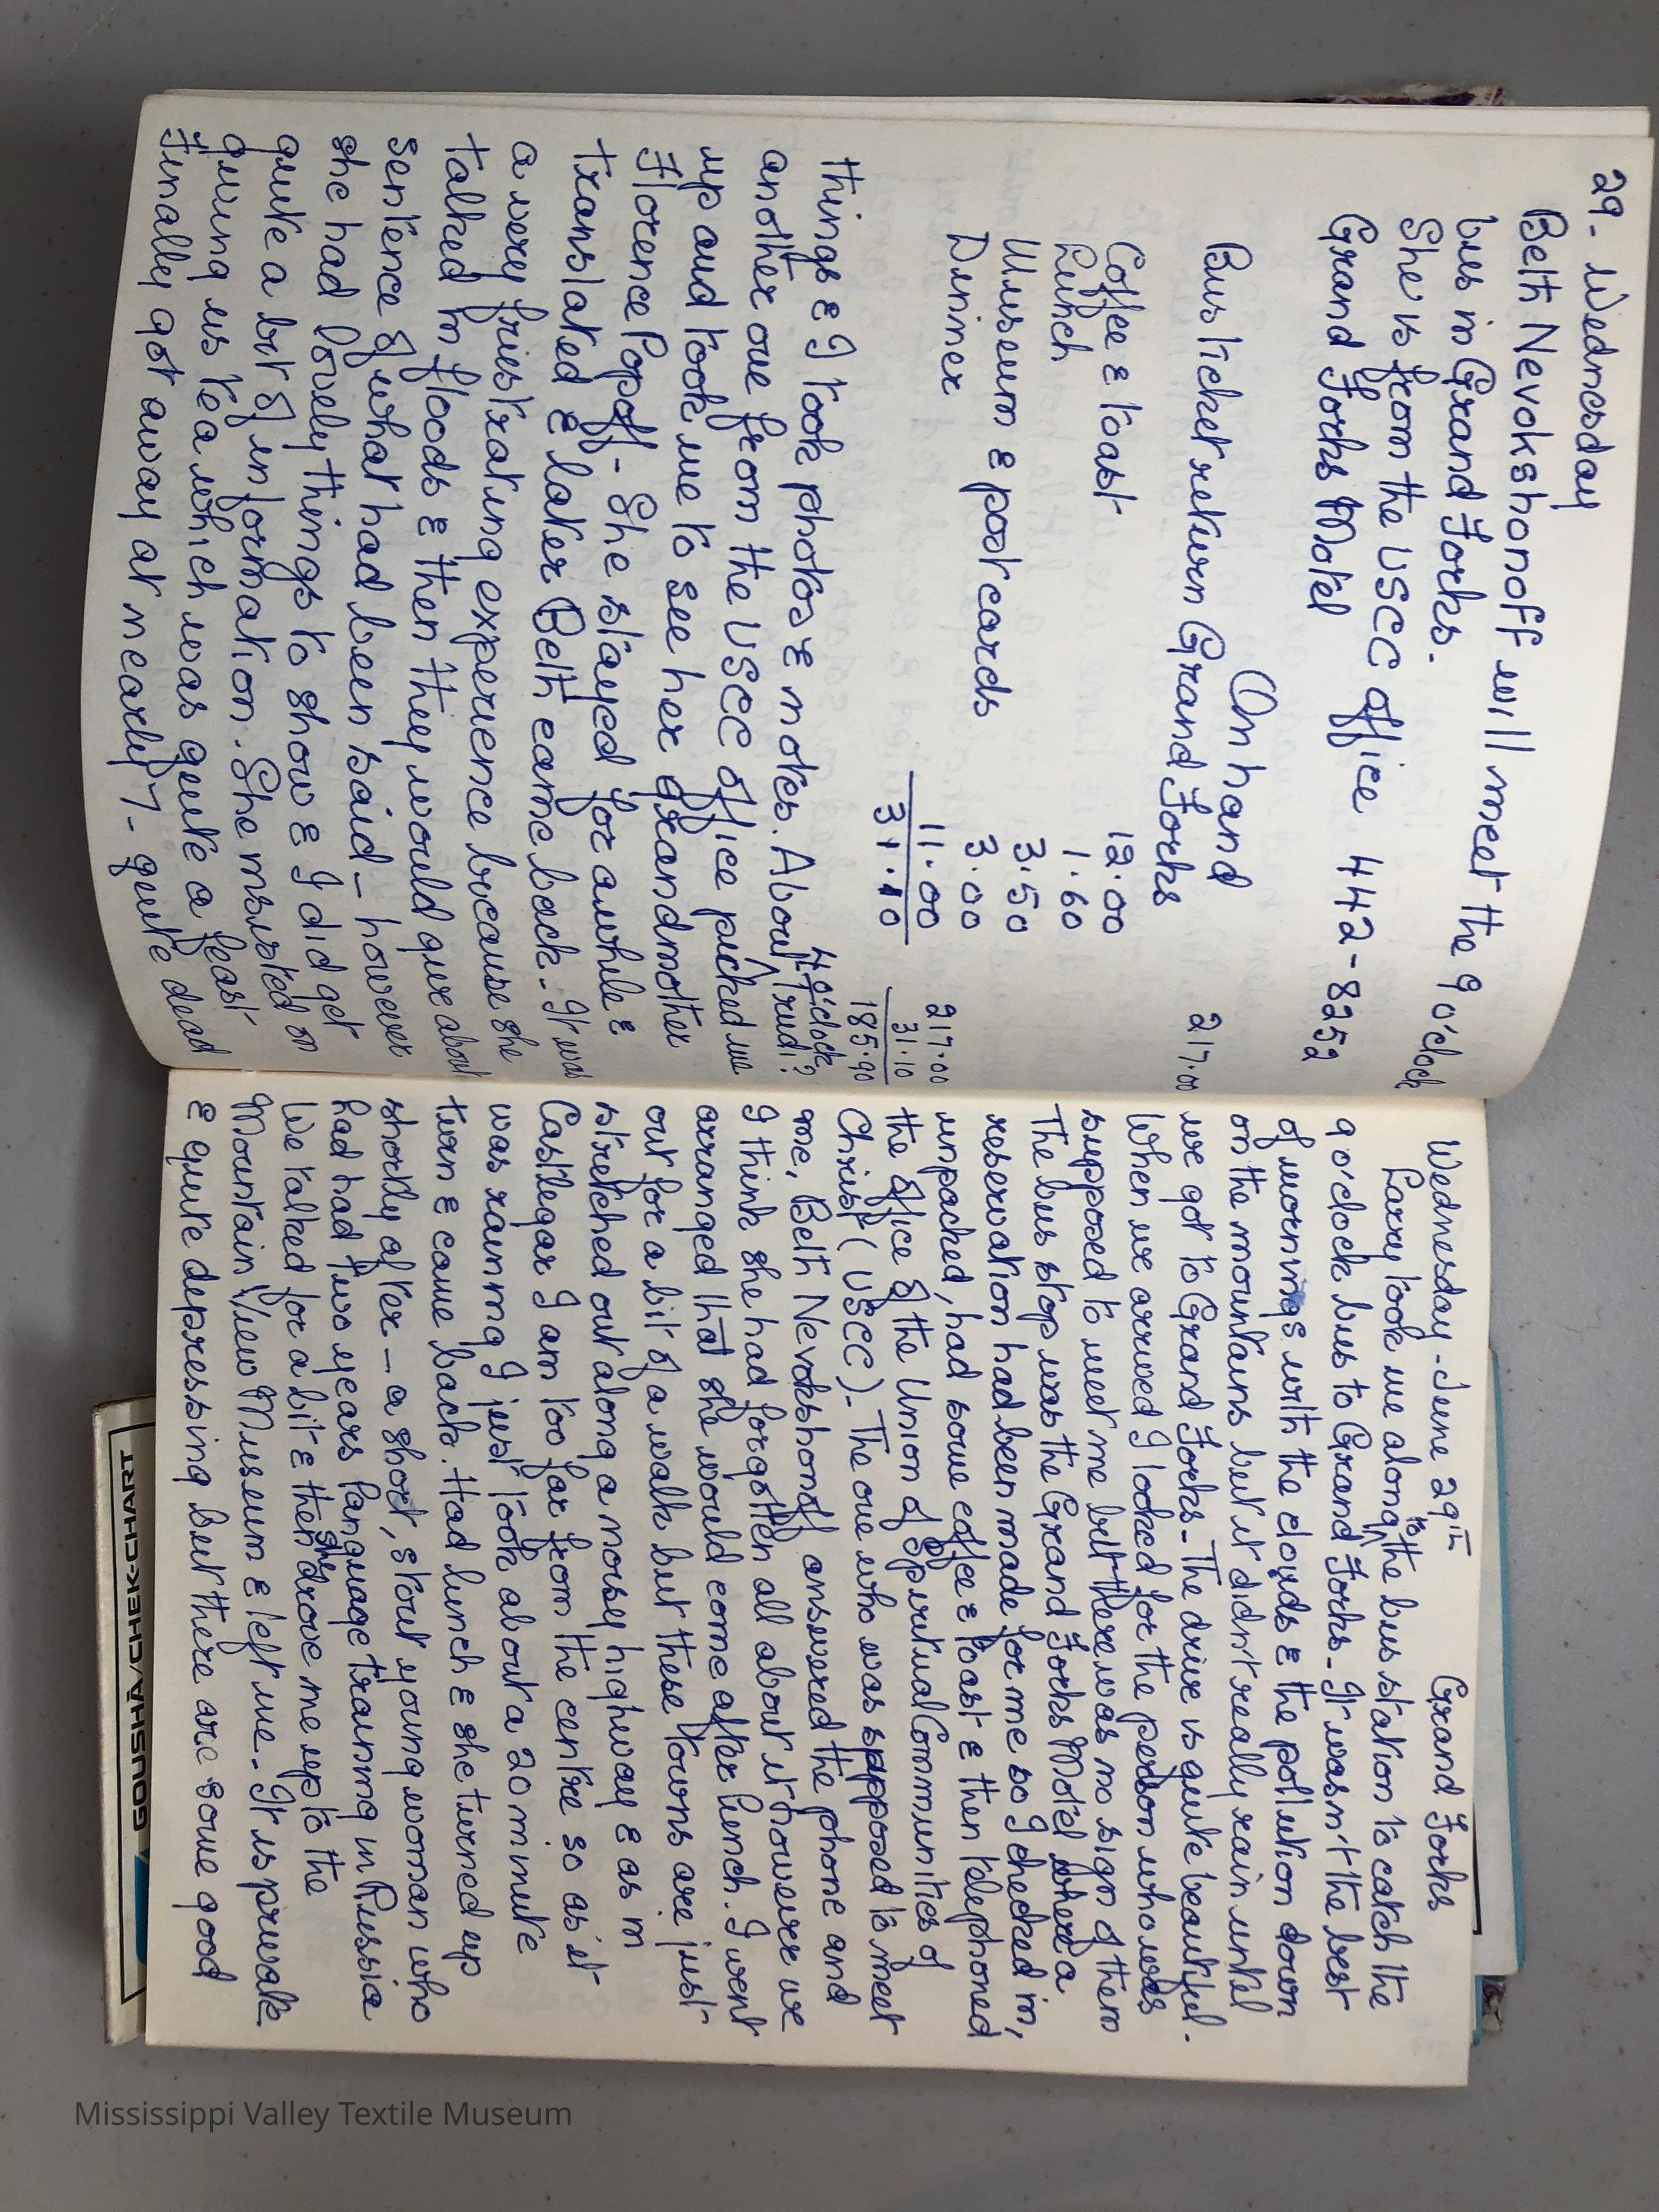 29 - Wednesday
Beth Nevokshonoff will meet the 9 o'clock
bus in Grand Forks.
She is from the USCC office 442-8252
Grand Forks Motel
On hand 217.00
Bus ticket return Grand Forks 12.00
Coffee & toast 1.60
Lunch 3.50
Museum & post cards 3.00
Dinner 11.00
31.10
217.00
31.10
185.90
things & I took photos & notes. About 4 o'clock?
another one from the USCC office picked me
up and took me to see her grandmother
Florence Popoff - She stayed for awhile &
translated & later Beth came back - It was
a very frustrating experience because she
talked in floods & then they would give about
sentence of what had been said - however
she had lovely things to show & I did get
quite a bit of information. She insisted on
giving us tea which was quite a feast
Finally got away at nearly 7 - quite dead
Wednesday - June 29th Grand Forks
Larry took me along to the bus station to catch the
9 o'clock bus to Grand Forks - It wasn't the best
of mornings with the clouds & the pollution down
on the mountains but it didn't really rain until
we got to Grand Forks - The drive is quite beautiful.
When we arrived I looked for the person who was
supposed to meet me but there was no sign of them
The bus stop was the Grand Forks Motel where a
reservation had been made for me so I checked in,
unpacked, had some coffee & toast & then telephoned
the office of the Union of Spiritual Communities of
Christ (USCC) - The one who was supposed to meet
me, Beth Nevokshonoff answered the phone and
I think she had forgotten all about it however we
arranged that she would come after lunch. I went
out for a bit of a walk but these towns are just
stretched out along a noisy highway & as in
Castlegar I am too far from the centre so as it
was raining I just took about a 20 minute
turn & came back. Had lunch & she turned up
shortly after - a short, stout young woman who
had had two years language training in Russia
We talked for a bit & then she drove me up to the
Mountain View Museum & left me - It is private
& quite depressing but there are some good
GOUSHA/CHEK-CHART
Mississippi Valley Textile Museum